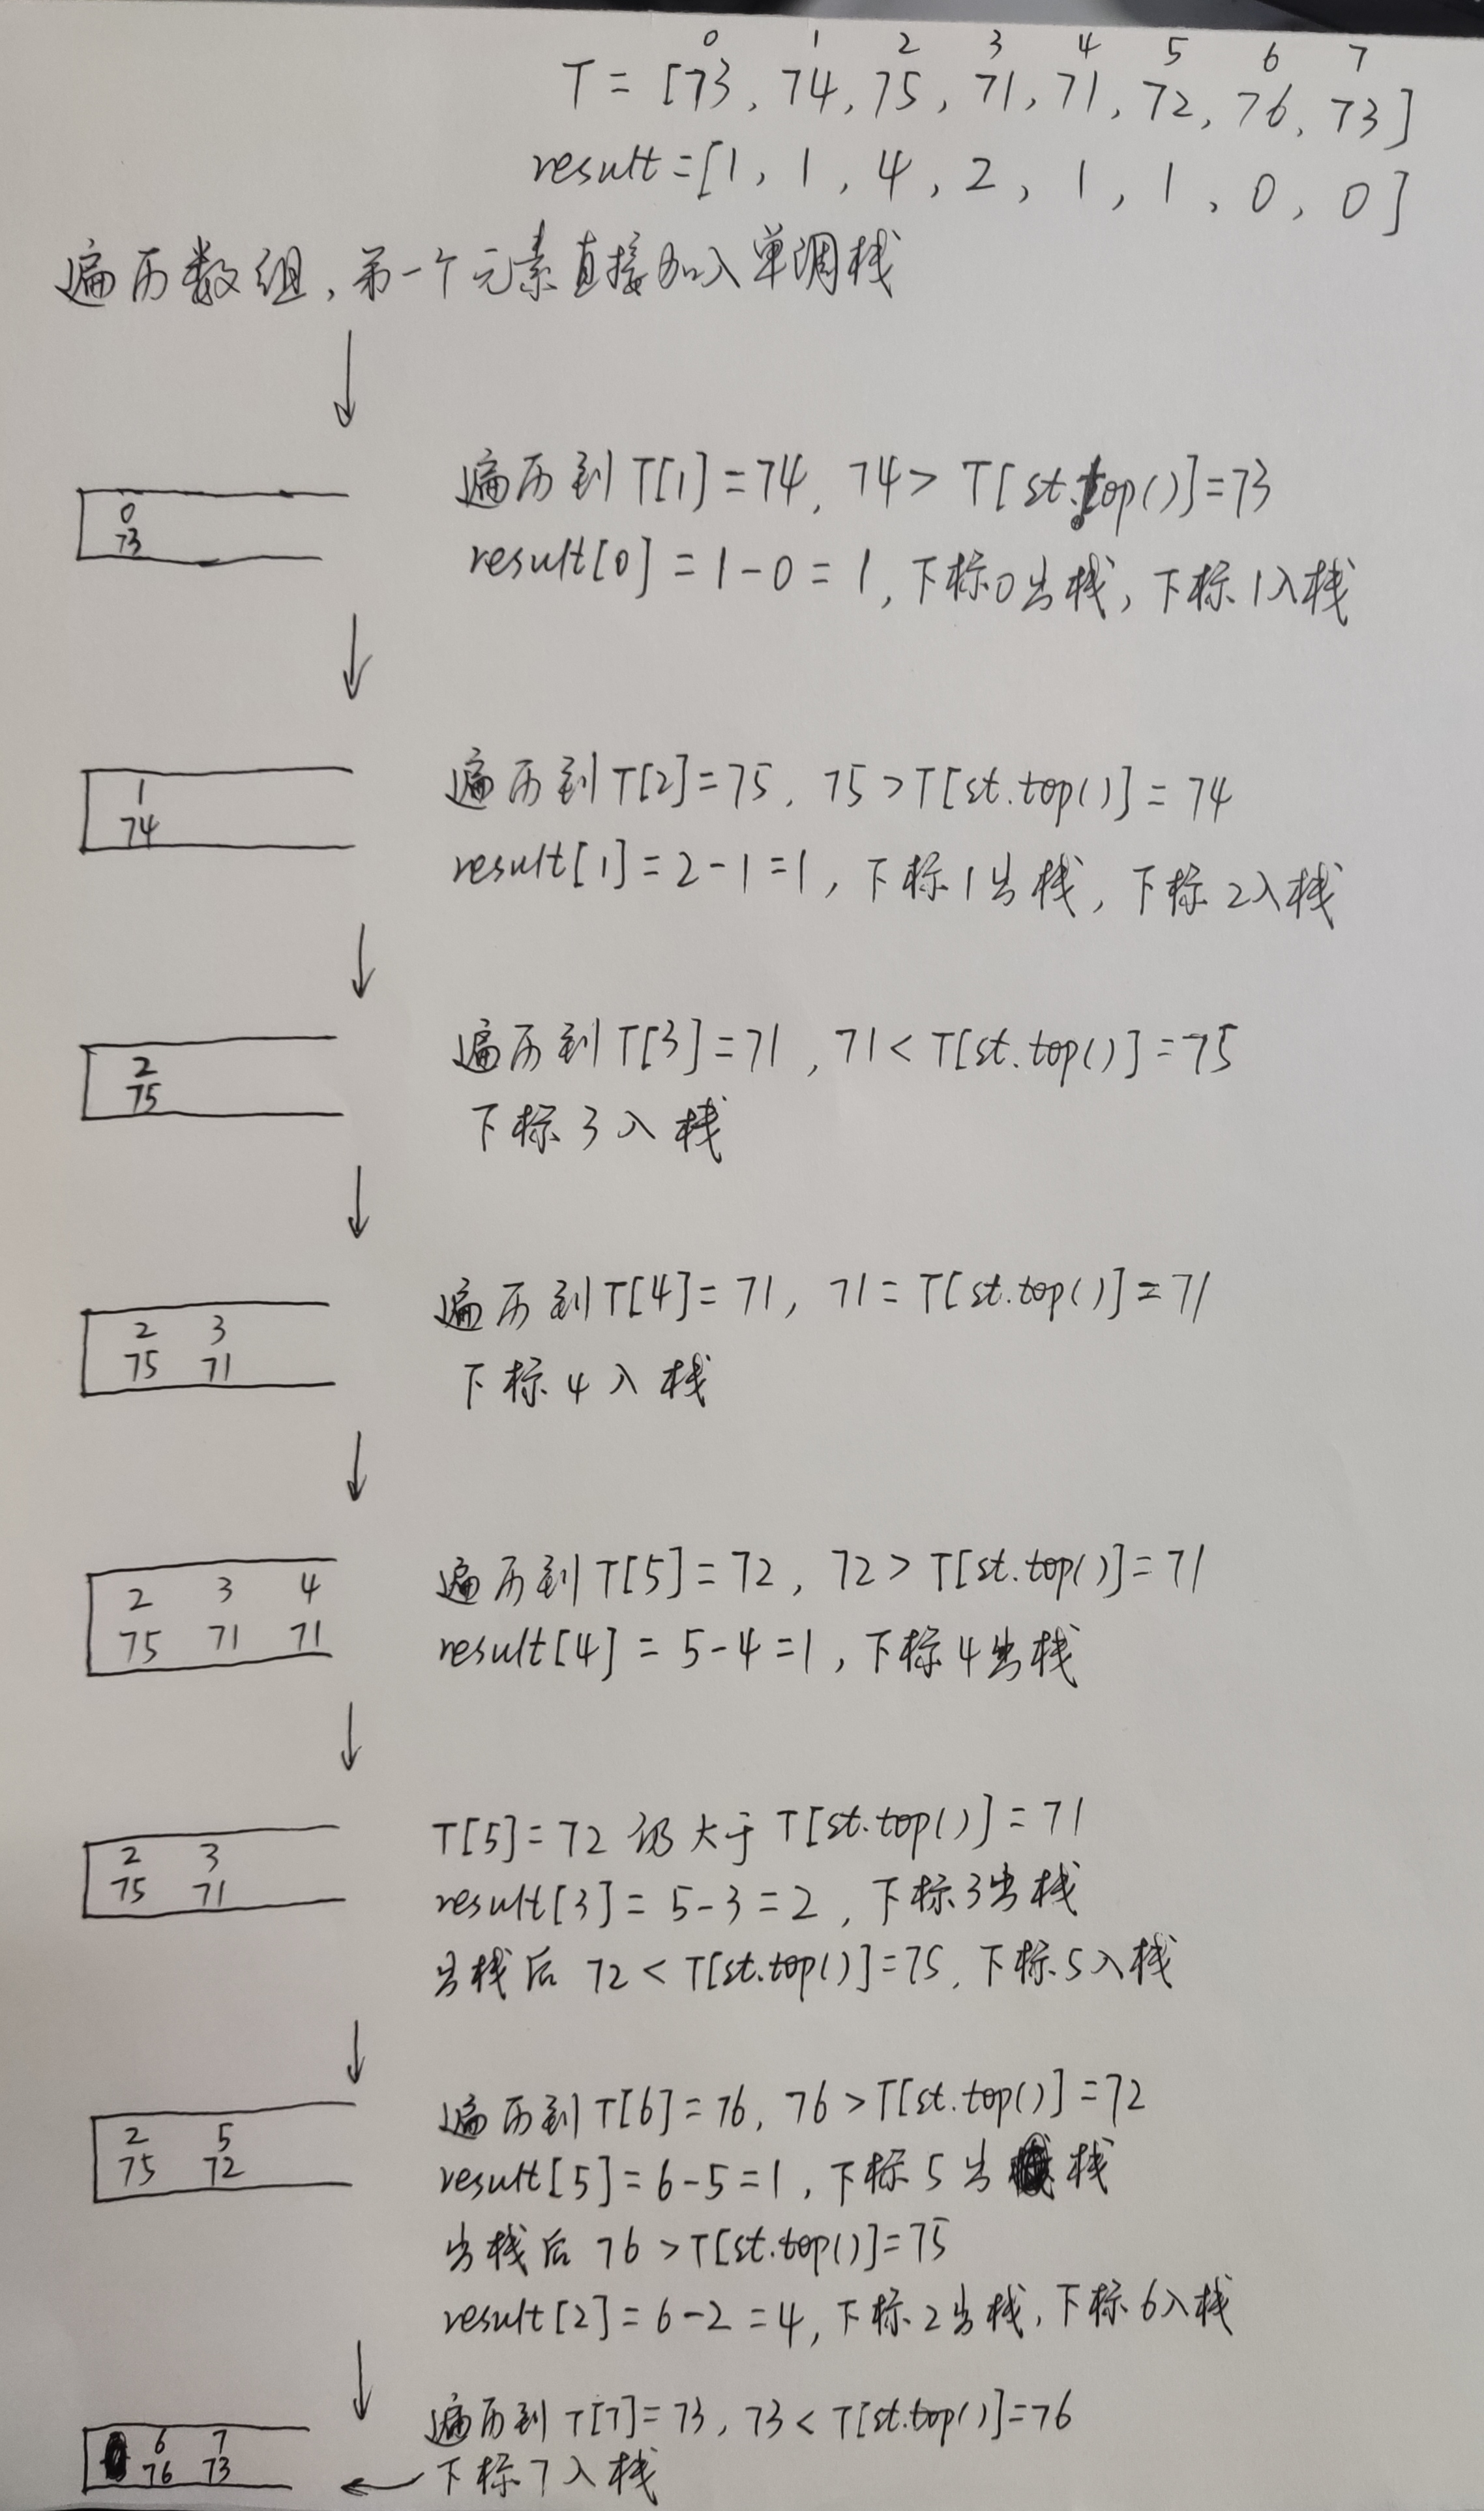 0 1 2 3 4 5 6 7
T = [73, 74, 75, 71, 71, 72, 76, 73]
result = [1, 1, 4, 2, 1, 1, 0, 0]
遍历数组,第一个元素直接加入单调栈
0
73
遍历到T[1]=74, 74> T[st.top()]=73
result[0] = 1-0 = 1,下标0出栈,下标1入栈
1
74
遍历到T[2]=75, 75>T[st.top()] = 74
result[1] = 2-1=1,下标1出栈,下标2入栈
2
75
遍历到T[3]=71, 71< T[st.top()] =75
下标3入栈
2 3
75 71
遍历到T[4]=71, 71= T[st.top()] =71
下标4入栈
2 3 4
75 71 71
遍历到T[5]=72, 72> T[st.top()]=71
result[4] = 5-4=1,下标4出栈
2 3
75 71
T[5]=72仍大于T[st.top()] = 71
result[3] = 5-3=2,下标3出栈
出栈后 72< T[st.top()]=75,下标5入栈
2 5
75 72
遍历到T[6]=76, 76>T[st.top()] =72
result[5]=6-5=1,下标5出栈
出栈后 76>T[st.top()]=75
result[2]=6-2=4,下标2出栈,下标6入栈
6 7
76 73
遍历到T[7]=73, 73< T[st.top()]=76
下标7入栈